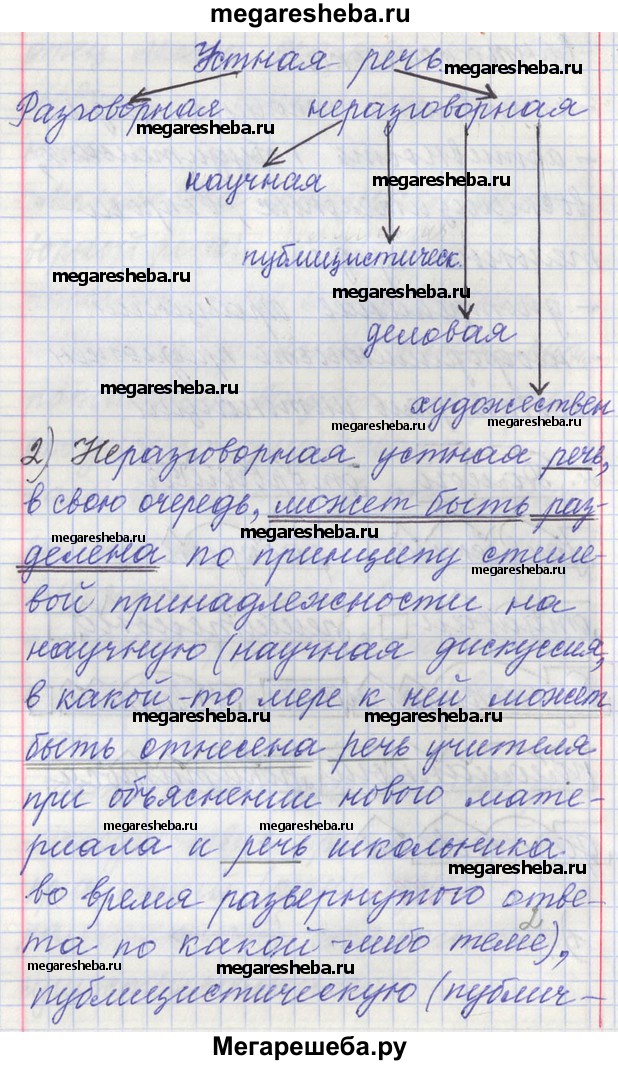 megaresheba.ru
Устная речь
megaresheba.ru
Разговорная неразговорная
megaresheba.ru
научная megaresheba.ru
публицистическ.
megaresheba.ru
megaresheba.ru
деловая
megaresheba.ru
художествен
megaresheba.ru megaresheba.ru
2) Неразговорная устная речь,
в свою очередь, может быть раз-
megaresheba.ru megaresheba.ru
делена по принципу стиле-
megaresheba.ru
вой принадлежности на
научную (научная дискуссия,
в какой-то мере к ней может
megaresheba.ru megaresheba.ru
быть отнесена речь учителя
при объяснении нового мате-
megaresheba.ru megaresheba.ru
риала и речь школьника
megaresheba.ru
во время развернутого отве-
2
та по какой-либо теме),
megaresheba.ru megaresheba.ru
публицистическую (публич-
Мегарешеба.ру